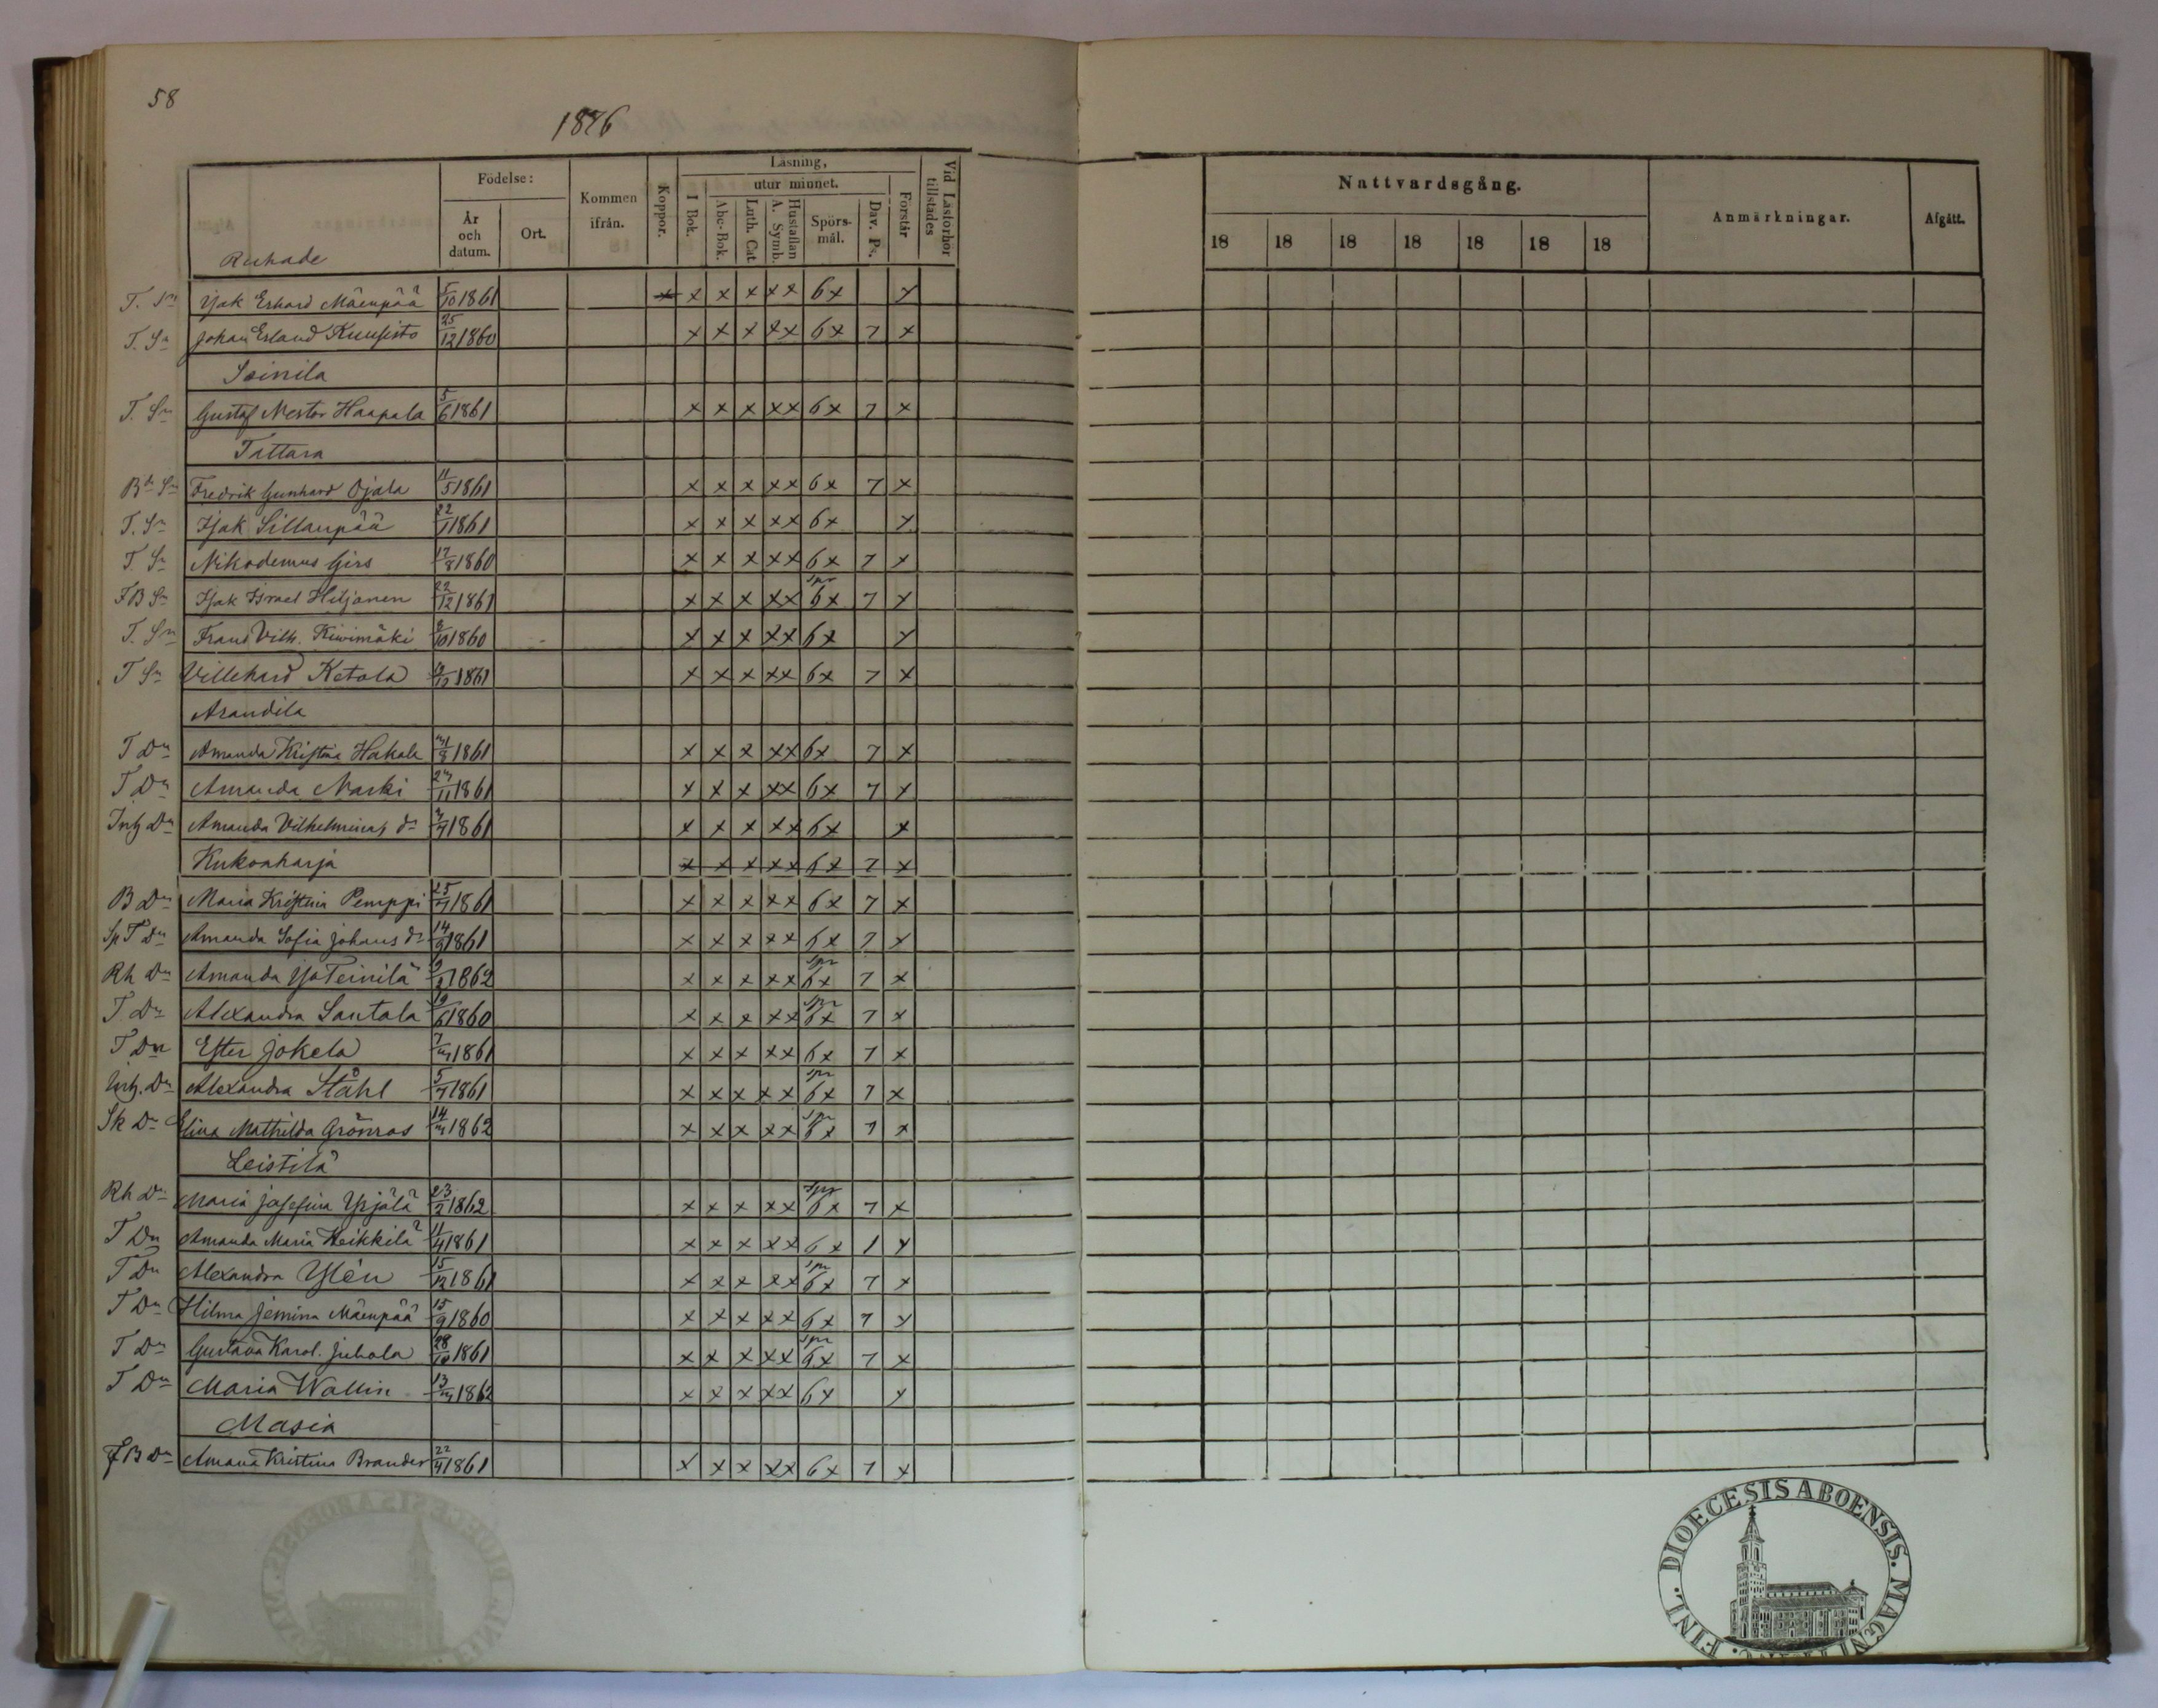 58
1876
Födelse:
År och datum.
Ort.
Kommen ifrån.
Koppor.
Läsning,
I Bok.
utur minnet.
Abc-Bok.
Luth. Cat.
Hustaflan A. Symb.
Spörsmål.
Dav. Ps.
Förstår
Vid Läsförhör tillstädes
Nattvardsgång.
18 18 18 18 18 18 18
Anmärkningar.
Afgått.
T. Sn Isak Erhard Mäenpää 5/10 1861 x x x x x x 6x x
T. Sn Johan Erland Kuusisto 25/12 1860 x x x x x 6x 7 x
Soinila
T. Sn Gustaf Nestor Haapala 5/6 1861 x x x x x 6x 7 x
Tattara
Bd Sn Fredrik Gunhard Ojala 11/5 1861 x x x x x 6x 7 x
T. Sn Isak Sillanpää 22/1 1861 x x x x x 6x x
T Sn Nikodemus Girs 17/8 1860 x x x x x 6x 7 x
FB Sn Isak Israel Hiljanen 22/12 1861 x x x x x spr 6x 7 x
T. Sn Frans Vilh. Kiwimäki 8/10 1860 x x x x x 6x x
T Sn Villehard Ketola 1861 x x x x x 6x 7 x
Arandila
T Dn Amanda Kristina Hakala 1861 x x x x x 6x 7 x
T Dn Amanda Marki 1861 x x x x x 6x 7 x
Inh Dn Amanda Vilhelmina 1861 x x x x x 6x x
Kukonharja x x x x x 6x 7 x
B Dn Maria Kristina Pemppi 25/7 1861 x x x x x 6x 7 x
Sp T Dn Amanda Sofia Johans dr 14/9 1861 x x x x x 6x 7 x
Rh Dn Amanda Yso Teinilä 9/2 1862 x x x x x spr 6x 7 x
T. Dn Alexandra Santala 19/6 1860 x x x x x spr 6x 7 x
T Dn Ester Jokela 1861 x x x x x 6x 7 x
Inh. Dn Alexandra Ståhl 5/7 1861 x x x x x spr 6x 7 x
Sk Dn Elina Mathilda Grönroos 1862 x x x x x spr 6x 7 x
Leistilä
Rh Dn Maria Josefina Yrjälä 23/2 1862 x x x x x spr 6x 7 x
T Dn Amanda Maria Heikkilä 11/4 1861 x x x x x 6x 1 x
T Dn Alexandra Ylén 15/12 1861 x x x x x spr 6x 7 x
T Dn Hilma Jemina Mäenpää 15/9 1860 x x x x x 6x 7 x
T Dn Gustava Karol. Juhola 28/10 1861 x x x x x spr 6x 7 x
T Dn Maria Wallin 1862 x x x x x 6x x
Masia
FB Dn Amana Kristina Brander 22/4 1861 x x x x x 6x 7 x
FINL. DIOECESIS ABOENSIS. MAGNI